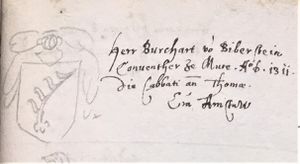 Herr Burchart vo Biberstein
Conventher ze Mure. Aᵒ. D. 1311
die Sabbati an Thome.
Ein